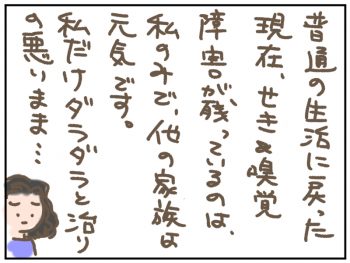 普通の生活に戻った
現在、せき&嗅覚
障害が残っているのは、
私のみで、他の家族は
元気です。
私だけダラダラと治り
の悪いまま…